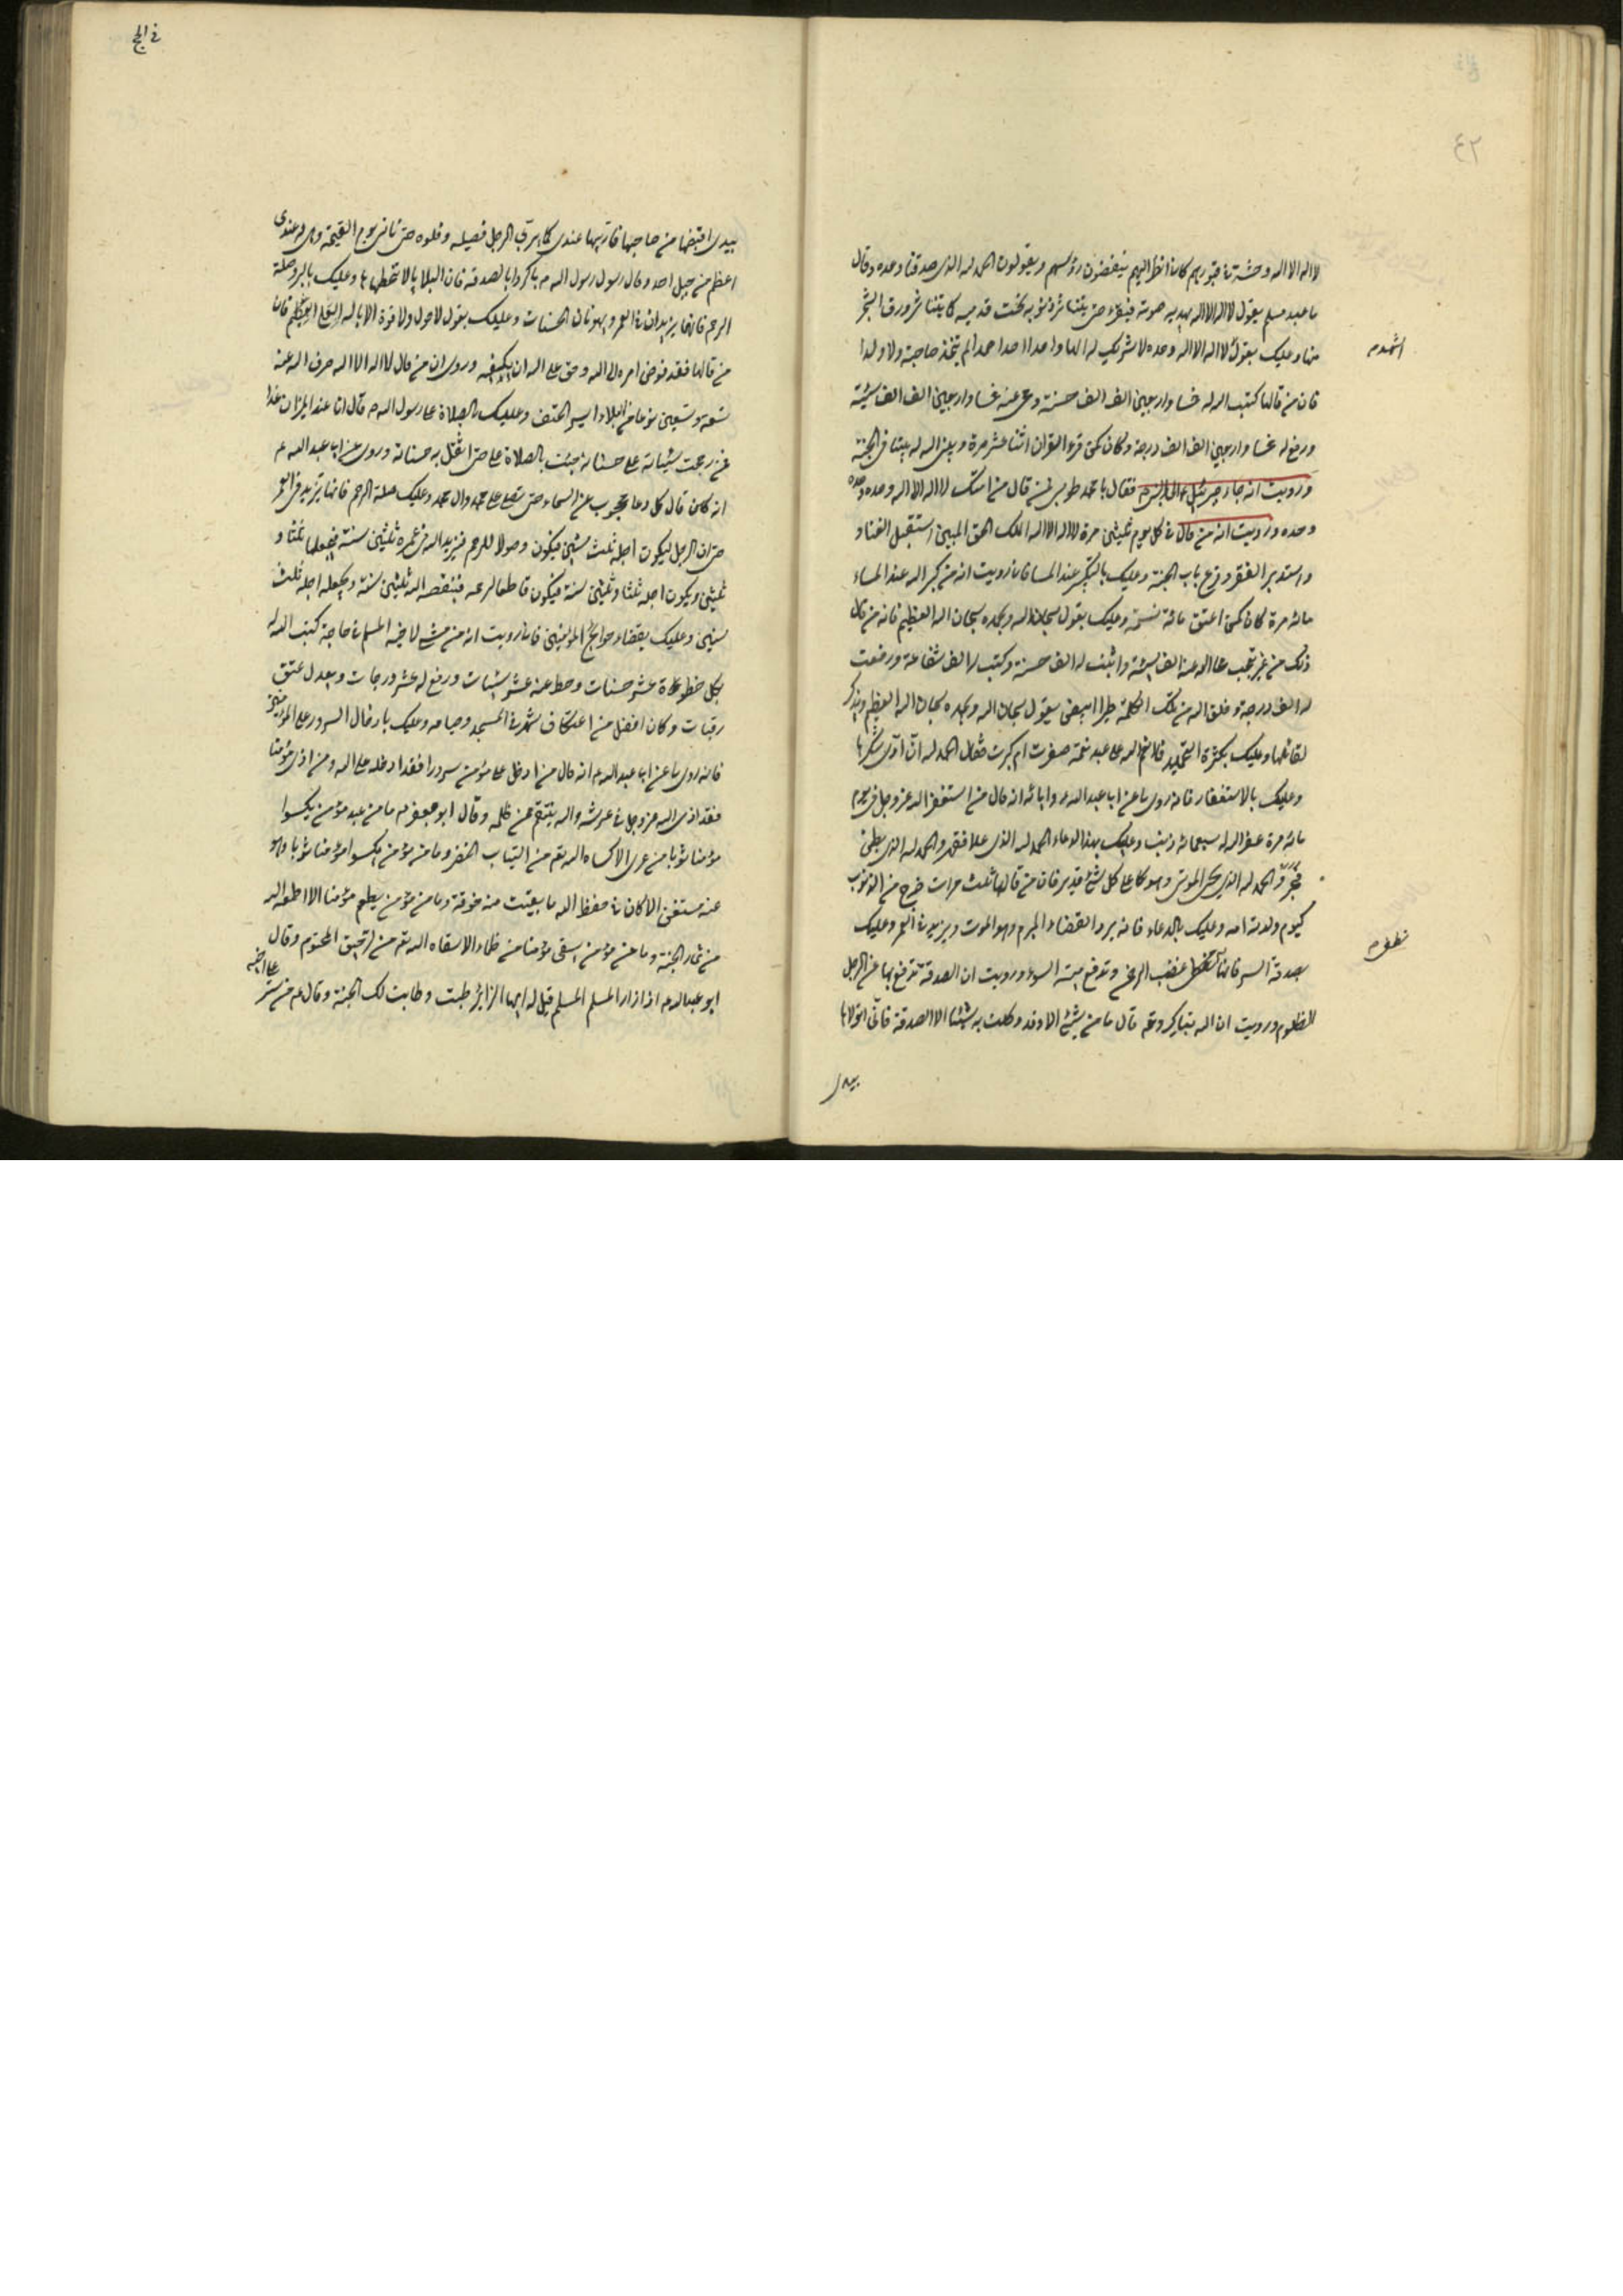 ٤٢
لا اله الا الله وحشة في قبورهم كان انظر اليهم ينفضون رؤسهم ويقولون الحمد لله الذي صدقنا وعده وقال
ما عبد مسلم يقول لا اله الا الله يمد به صوته فيفرغ حتى يتناثر ذنوبه تحت قدميه كما يتناثر ورق الشجر
منها وعليك بقول لا اله الا الله وحده لا شريك له الها واحدا احدا صمدا لم يتخذ صاحبة ولا ولدا
اشهد ان
فان من قالها كتب الله له خمسا واربعين الف الف حسنة ومحى عنه خمسا واربعين الف الف سيئة
ورفع له خمسا واربعين الف الف درجة وكان كمن قرء القران اثنا عشر مرة وبنى الله له بيتا في الجنة
ورويت انه جاء جبرئيل ع الى النبي ص فقال يا محمد طوبى لمن قال من امتك لا اله الا الله وحده وحده
وحده ورويت انه من قال في كل يوم ثلثين مرة لا اله الا الله الملك الحق المبين استقبل الغنا و
واستدبر الفقر وقرع باب الجنة وعليك بالتكبير عند المسا فانا رويت انه من كبر الله عند المساء
مائة مرة كان كمن اعتق مائة نسمة وعليك بقول سبحان الله وبحمده سبحان الله العظيم فانه من قال
ذلك من غير تعجب محا الله عنه الف سيئة واثبت له الف حسنة وكتب له الف شفاعة ورفعت
له الف درجة وخلق الله من تلك الكلمة طيرا ابيض يقول سبحان الله وبحمده سبحان الله العظيم ويذكر
لقائلها وعليك بكثرة التحميد فما انعم الله على عبد نعمة صغرت ام كبرت فقال الحمد لله الا ادى شكرها
وعليك بالاستغفار فانه روى ما عن ابا عبد الله عن ابائه انه قال من استغفر الله عز وجل في يوم
مائة مرة غفر الله له سبعمائة ذنب وعليك بهذا الدعاء الحمد لله الذي علا فقهر والحمد لله الذي بطن
فخبر والحمد لله الذي يحي الموتى وهو كا على كل شئ قدير فان من قالها ثلث مرات خرج من الذنوب
كيوم ولدته امه وعليك بالدعاء فانه يرد القضاء المبرم وهو الموت ويزيد في العمر وعليك
بصدقة السر فانها تطفئ غضب الرحمن وتدفع ميتة السوء ورويت ان الصدقة تدفع بها عن الرجل
المظلوم ورويت ان الله تبارك وتعالى قال ما من شئ الا وقد وكلت به شيئا الا الصدقة فانى اتولاها
بيدى
في الحج
بيدى اقبضها من صاحبها فاربيها عندى كما يربى الرجل فصيله وفلوه حتى تاتى يوم القيمة وهى له عندى
اعظم من جبل احد وقال رسول رسول الله ص باكروا بالصدقة فان البلايا لا تتخطاها وعليك بالبر وصلة
الرحم فانهما يزيدان في العمر ويهونان الحسنات وعليك بقول لا حول ولا قوة الا بالله العلى العظيم فان
من قالها فقد فوض امره الى الله وحق على الله ان يكفيه وروى ان من قال لا اله الا الله صرف الله عنه
تسعة وتسعين نوعا من البلاء ايسر الخنق وعليك بالصلاة على رسول الله ص قال انا عند الميزان غدا
فمن رجحت سيئاته على حسناته جئت بالصلاة على حتى اثقل به حسناته وروى عن ابى عبد الله ع
انه كان قال كل دعاء محجوب عن السماء حتى يصلى على محمد وال محمد وعليك صلة الرحم فانها تزيد في العمر
حتى ان الرجل ليكون اجله ثلث سنين فيكون وصولا للرحم فيزيد الله في عمره ثلثين سنة فيجعلها ثلثا و
ثلثين ويكون اجله ثلثا وثلثين سنة فيكون قاطعا لرحمه فينقصه الله ثلثين سنة ويجعله اجله ثلث
سنين وعليك بقضاء حوائج المؤمنين فانا رويت انه من مشى لاخيه المسلم في حاجة كتب الله له
بكل خطوة عشر حسنات وحط عنه عشر سيئات ورفع له عشر درجات ويعدل عتق
رقبات وكان افضل من اعتكاف شهر في المسجد وصيامه وعليك بادخال السرور على المؤمنين
فانه روى ما عن ابا عبد الله ع انه قال من ادخل على مؤمن سرورا فقد ادخله على الله ومن اذى مؤمنا
فقد اذى الله عز وجل في عرشه والله ينتقم ممن ظلمه وقال ابو جعفر ع ما من عبد مؤمن يكسوا
مؤمنا ثوبا من عرى الا كساه الله تعم من الثياب الخضر وما من مؤمن يكسوا مؤمنا ثوبا وهو
عنه مستغنى الا كان في حفظ الله ما بقيت منه خرقة وما من مؤمن يطعم مؤمنا الا اطعمه الله
من ثمار الجنة وما من مؤمن يسقى مؤمنا من ظماء الا سقاه الله تعم من الرحيق المختوم وقال
ابو عبد الله ع اذا زار المسلم المسلم قيل له ايها الزائر طبت وطابت لك الجنة وقال ع من ستر
على اخيه